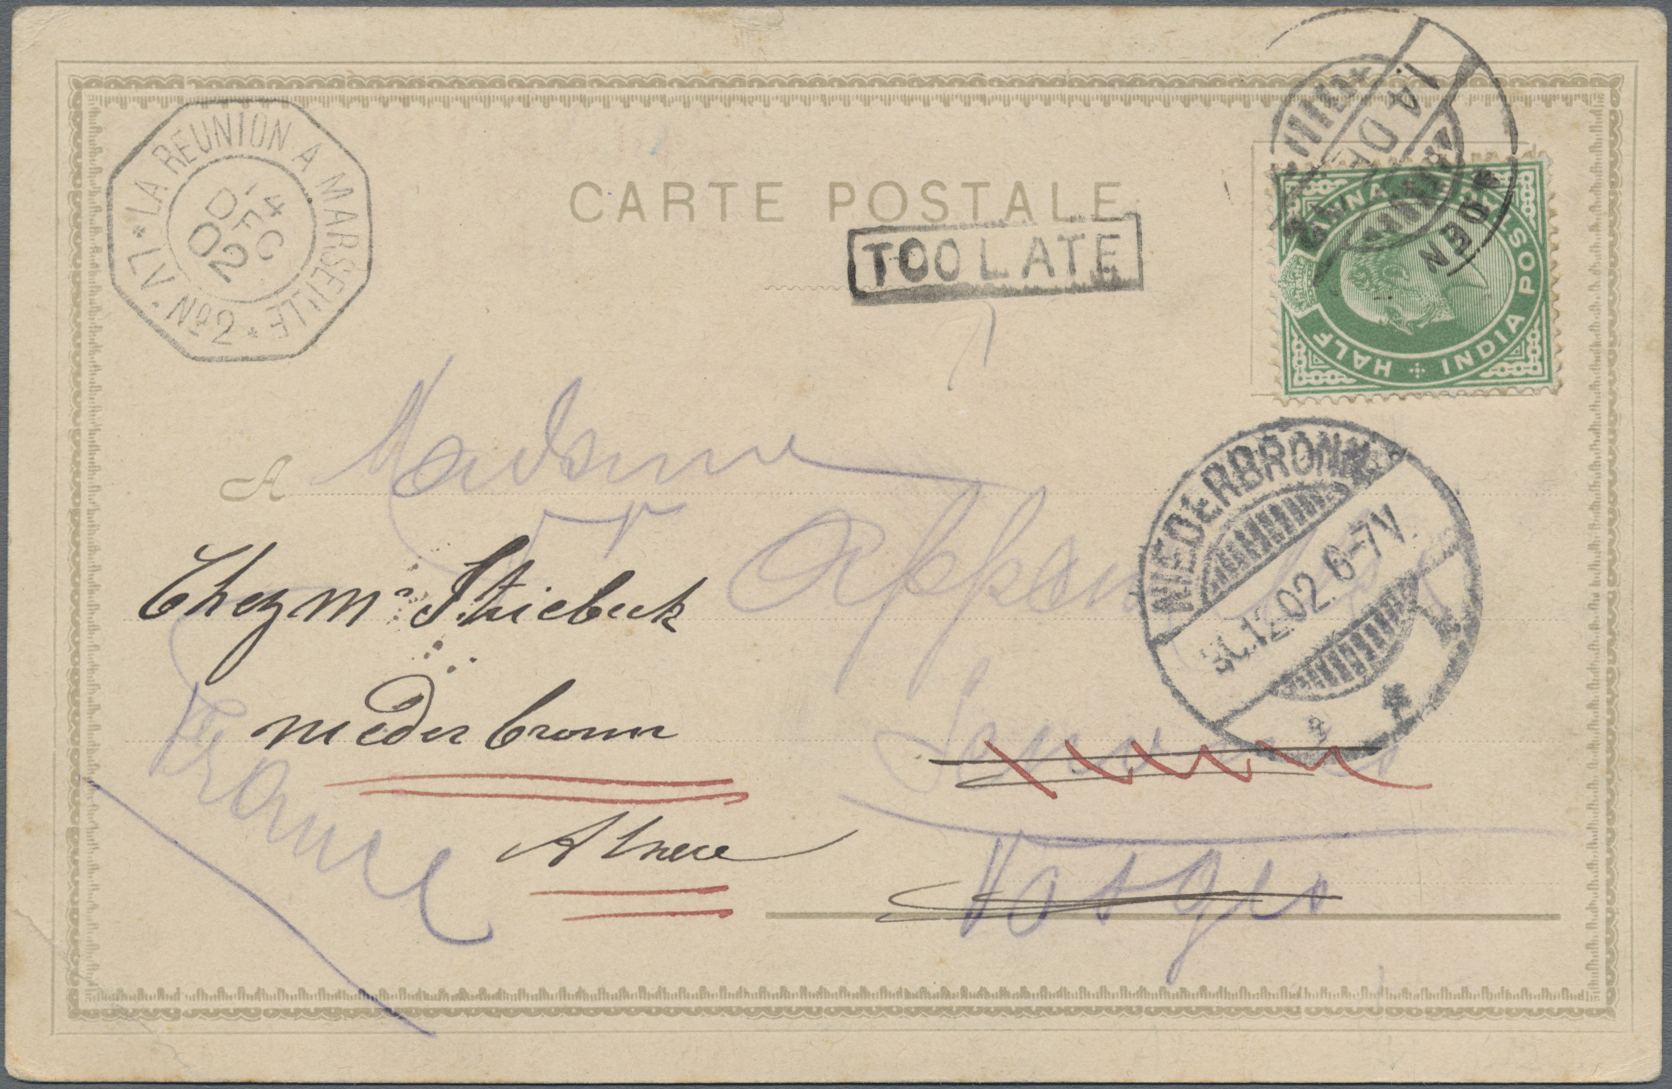 LA REUNION A MARSEILLE
14
DEC
02
* LV. No2 *
CARTE POSTALE
TOO LATE
ADEN
14 DE
INDIA POSTAGE
HALF ANNA
A Madame
Appen
Chez Mr Stiebeck
Niederbronn
Alsace
France
Vosges
NIEDERBRONN
30.12.02. 6-7V.